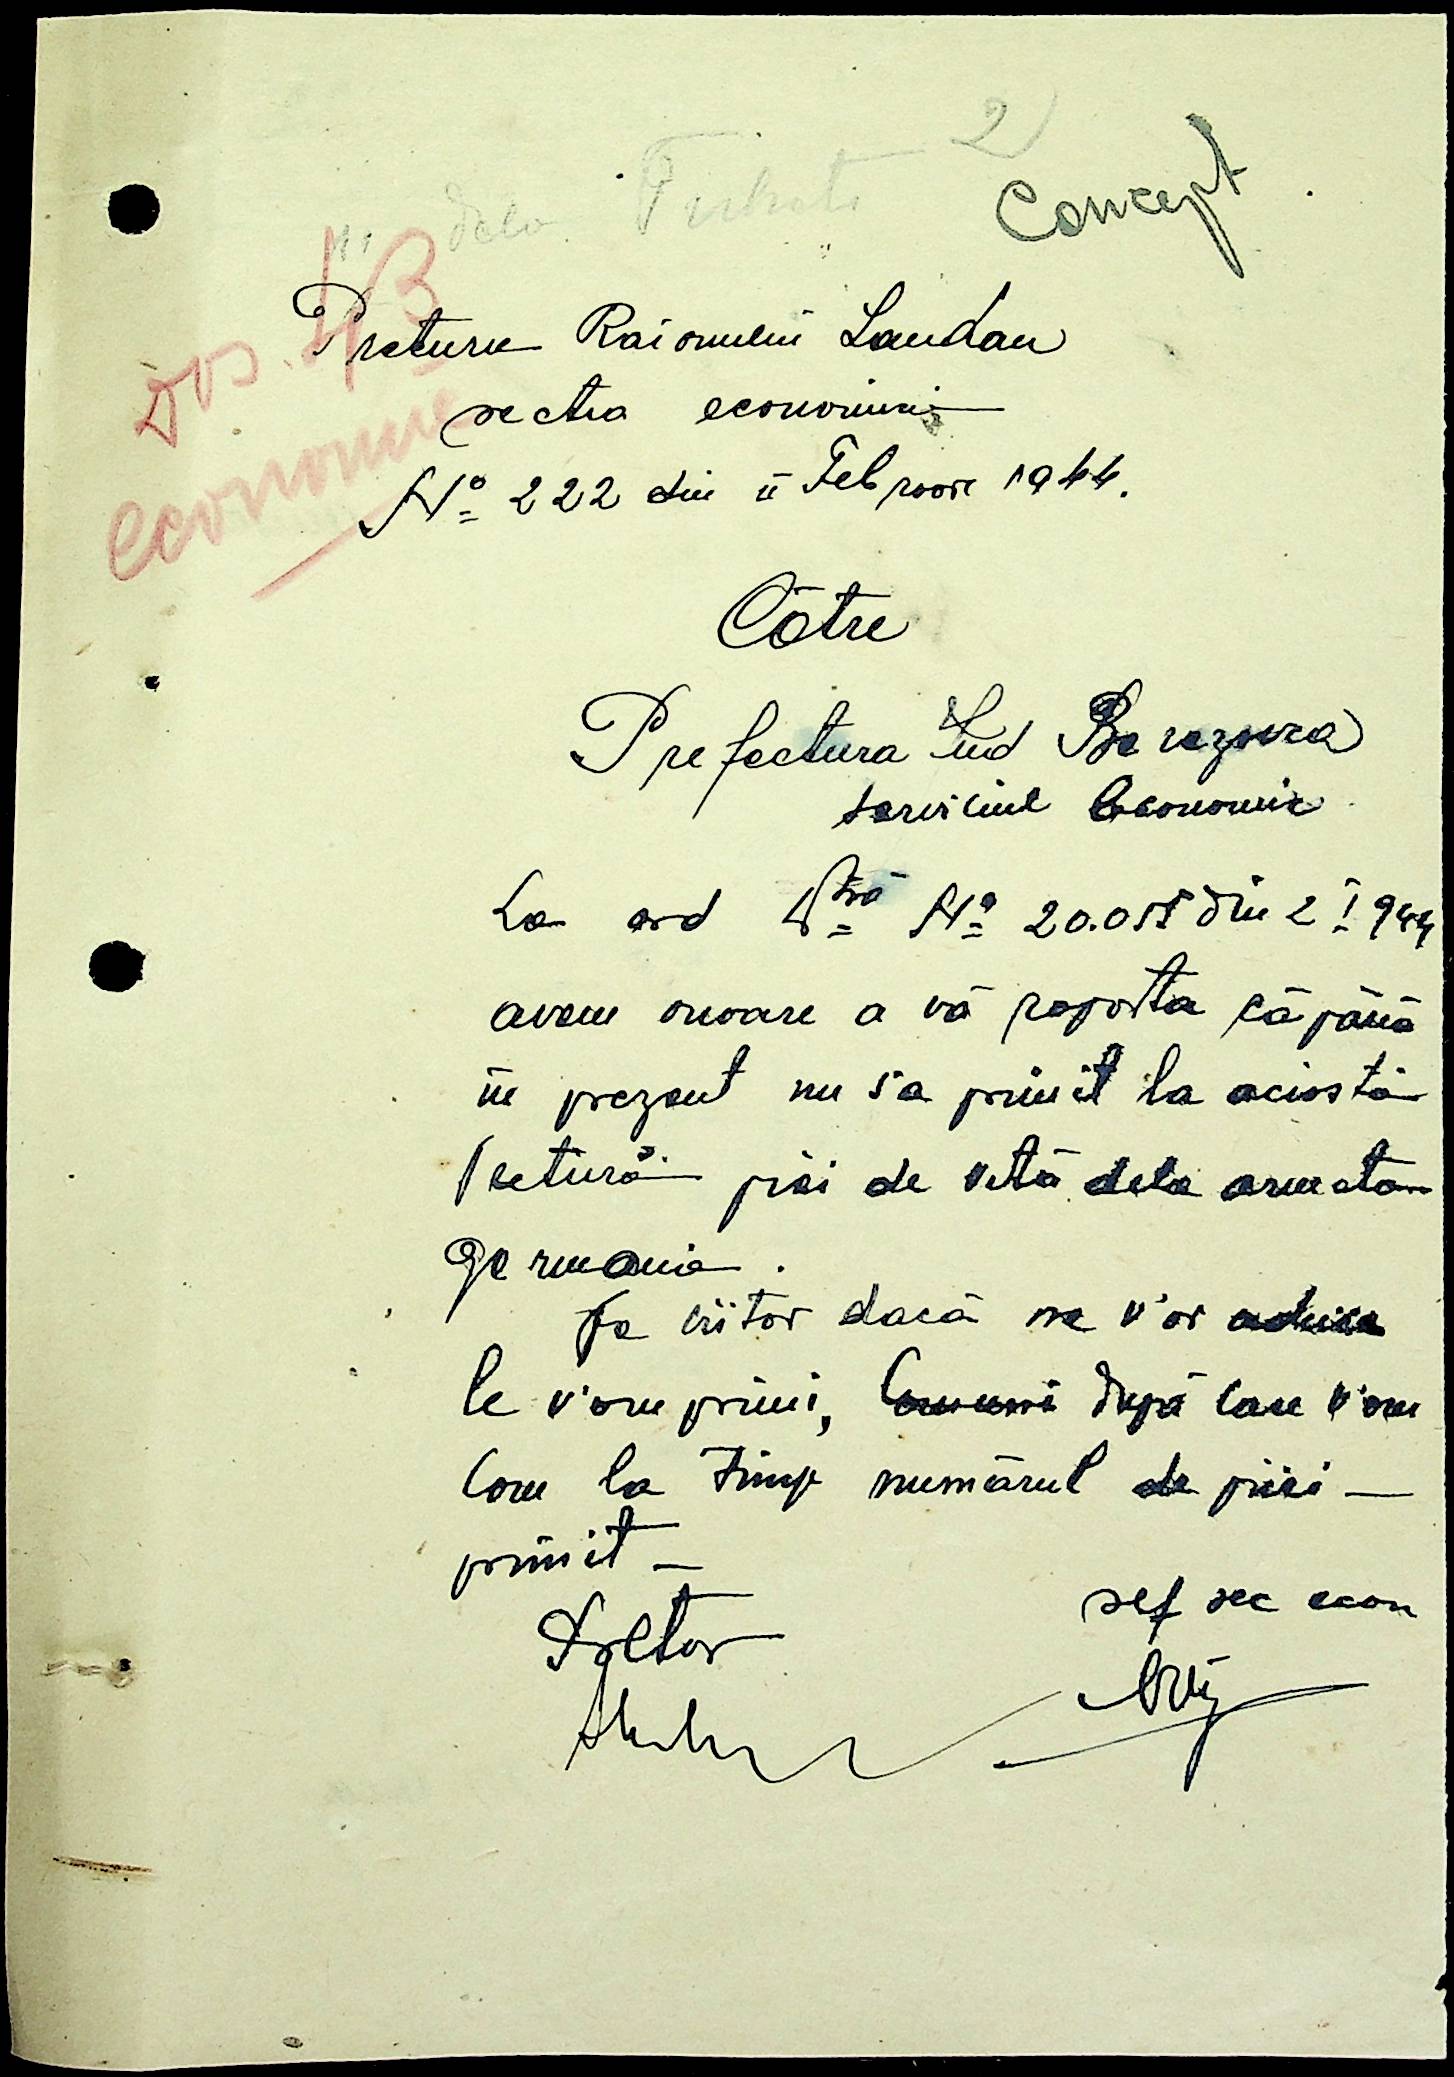 2
Concept
dela
Dos. 43
economie
Pretura Raionului Landau
sectia economică
No 222 din 11 Febroore 1944.
Cötre
Prefectura Jud Berezovca
serviciul Economic
La ord Dvră No 20.055 din 2 I 944
avem onoare a vă raporta că până
în prezent nu s'a primit la aciastă
Pretură piei de vită dela armata
germania.
Pe viitor dacă ne v'or aduce
le v'om primi, după care v'om
com la timp numărul de piei —
primit —
Pretor
sef sec econ